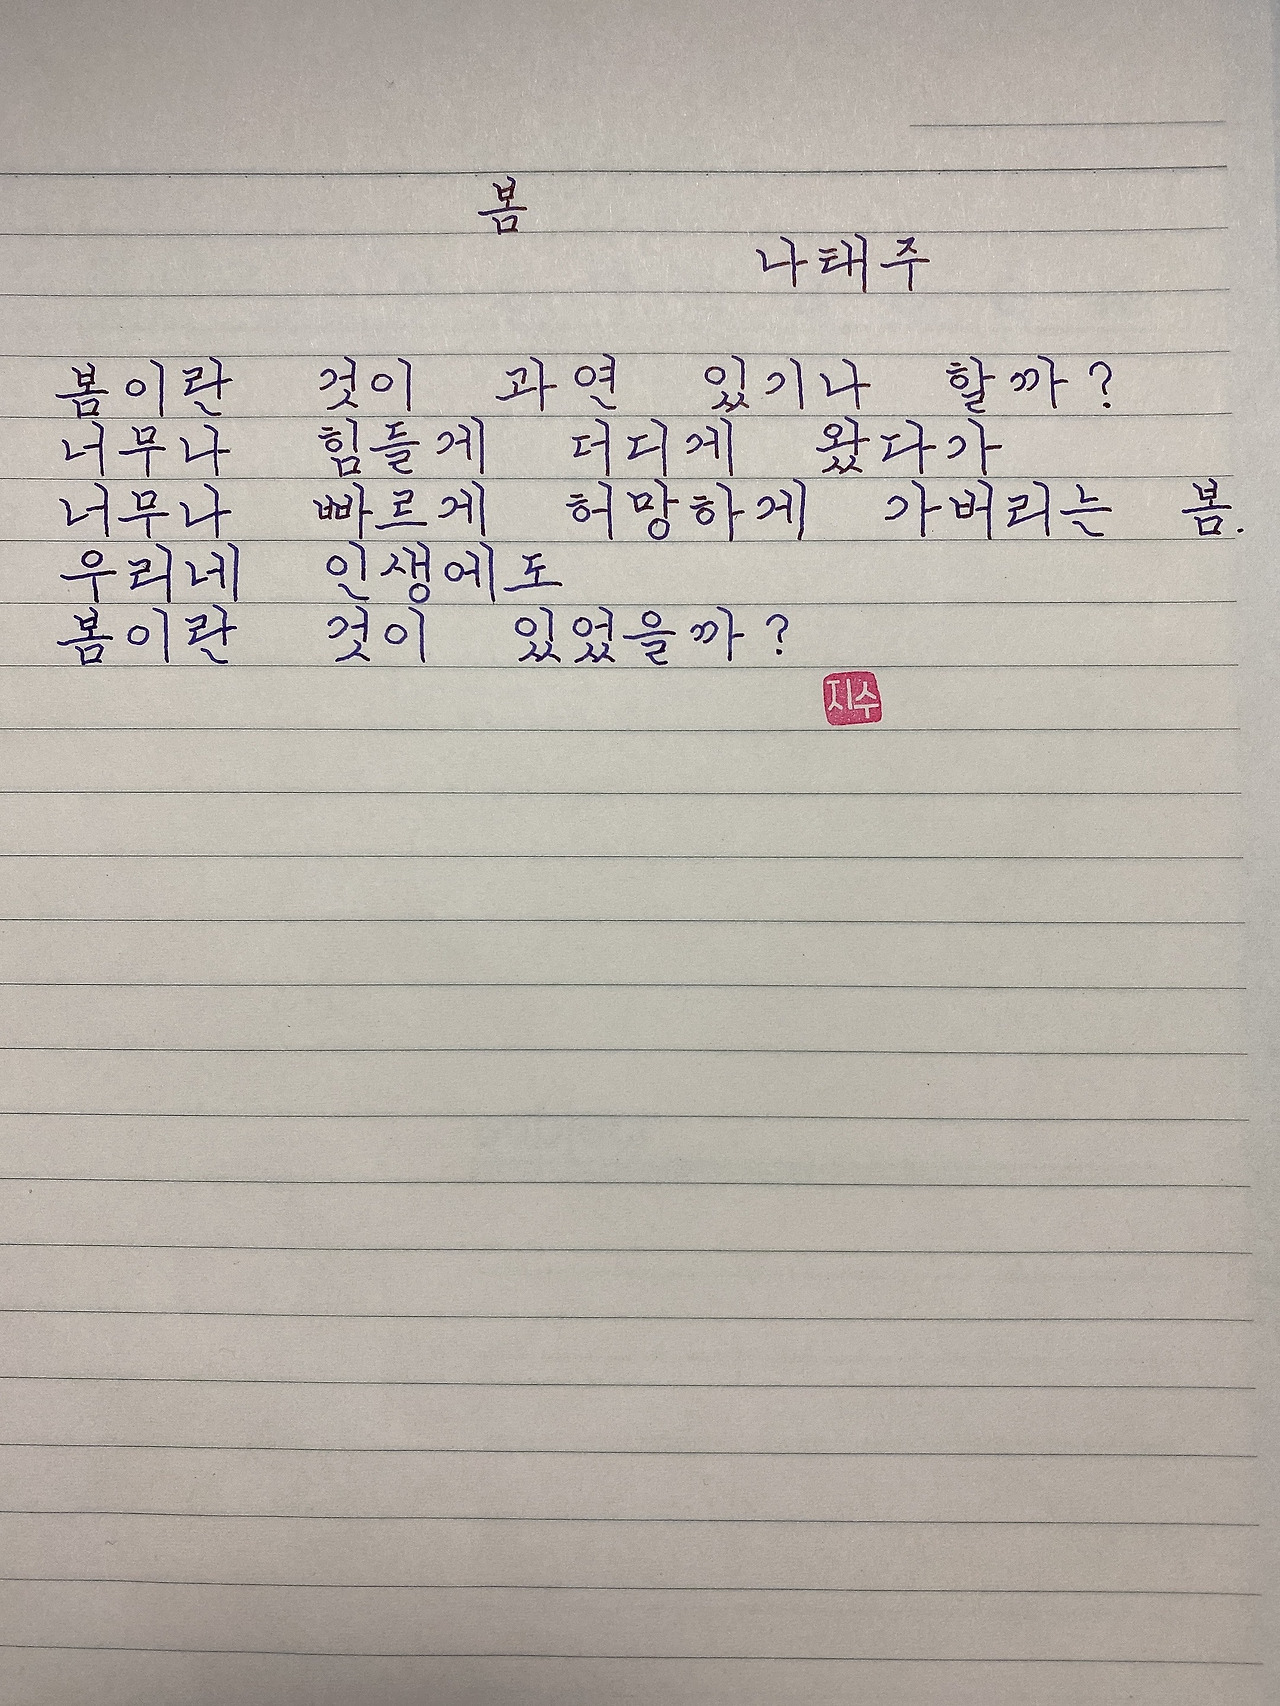 봄
나태주
봄이란 것이 과연 있기나 할까?
너무나 힘들게 더디게 왔다가
너무나 빠르게 허망하게 가버리는 봄.
우리네 인생에도
봄이란 것이 있었을까?
지수